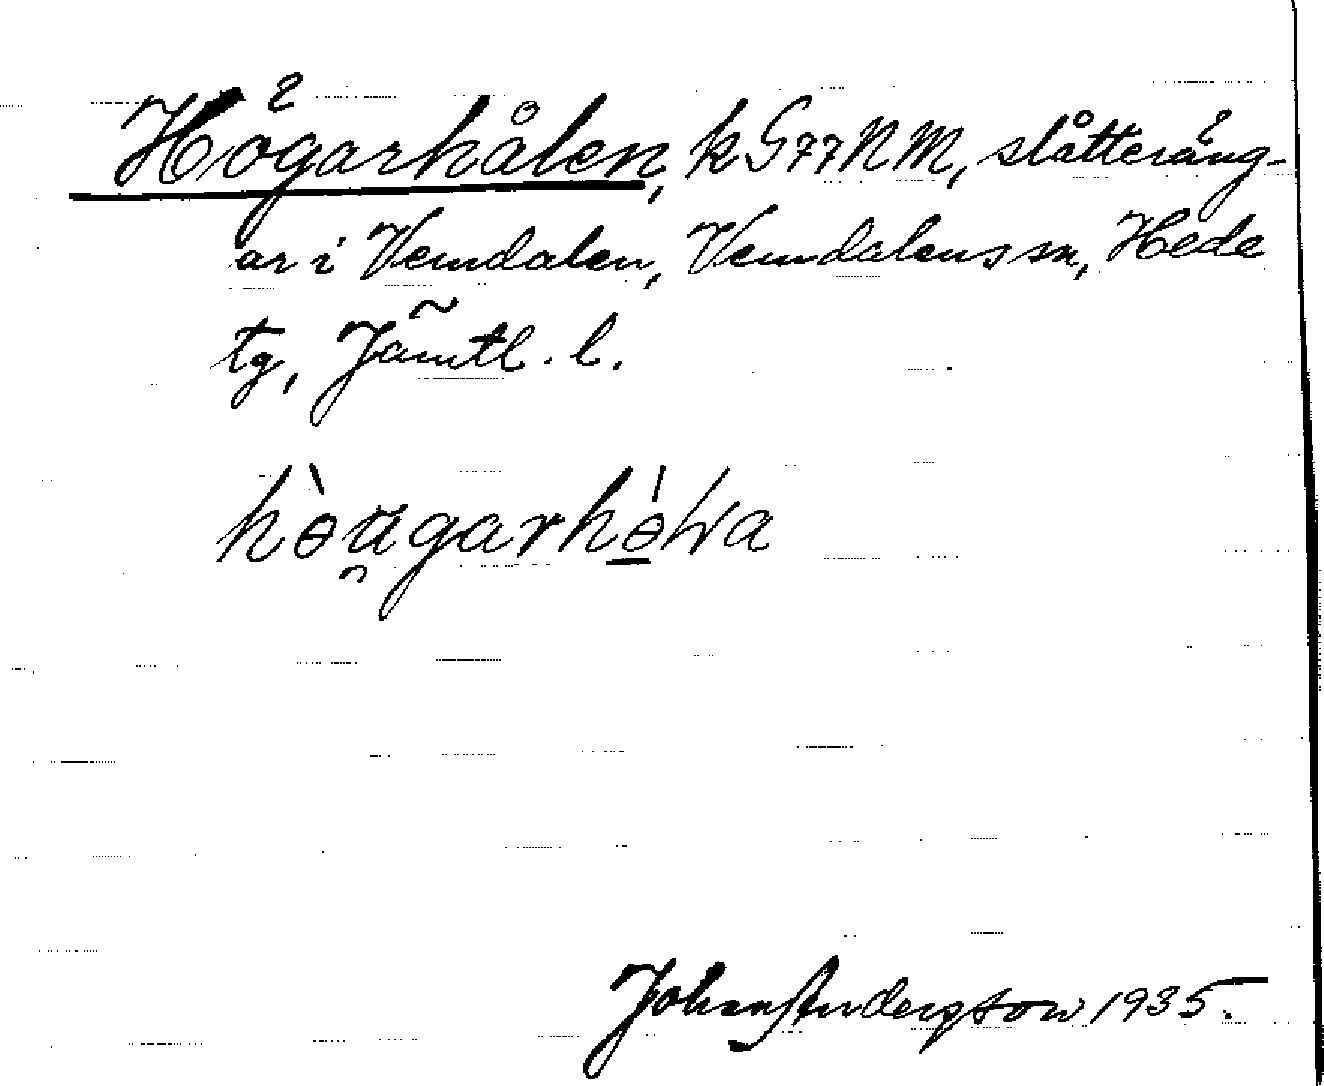 Högarhålen, k G77NM, slåtteräng-
ar i Vemdalen, Vemdalens sn, Hede
tg, Jämtl. l.
hɵ̀u̯garhɵ̱̀Lʹa
Johan Anderzson 1935.